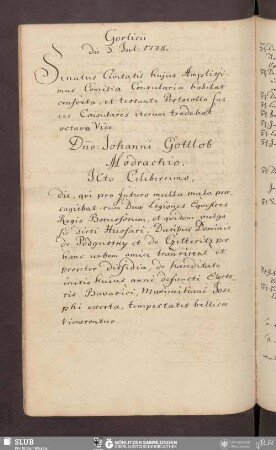 Gorlicii
d. 3 Jul. 1778.
Senatus Civitatis hujus Amplissi-
mus, Comitia Consularia habebat
consveta, et testante Protocollo fas-
ces Consulares iterum tradebat
octava Vice
Dno: Johanni Gottlob
Modrachio,
JCto Celeberrimo,
die, qui pro futuro multa mala prae-
sagiebat cum Duae Legiones Equestres
Regis Borussorum, et quidem vulgo
sic dicti Hussari, Ducibus Dominis
de Podgursky et de Czetteritz pro-
xime urbem amice transirent et
propter dissidia, de haereditate
initio huius anni defuncti Electo-
ris Bavarici, Maximiliani Jose-
phi exorta, tempestates bellicae
timerentur.
SLUB
Wir führen Wissen.
GÖRLITZER SAMMLUNGEN